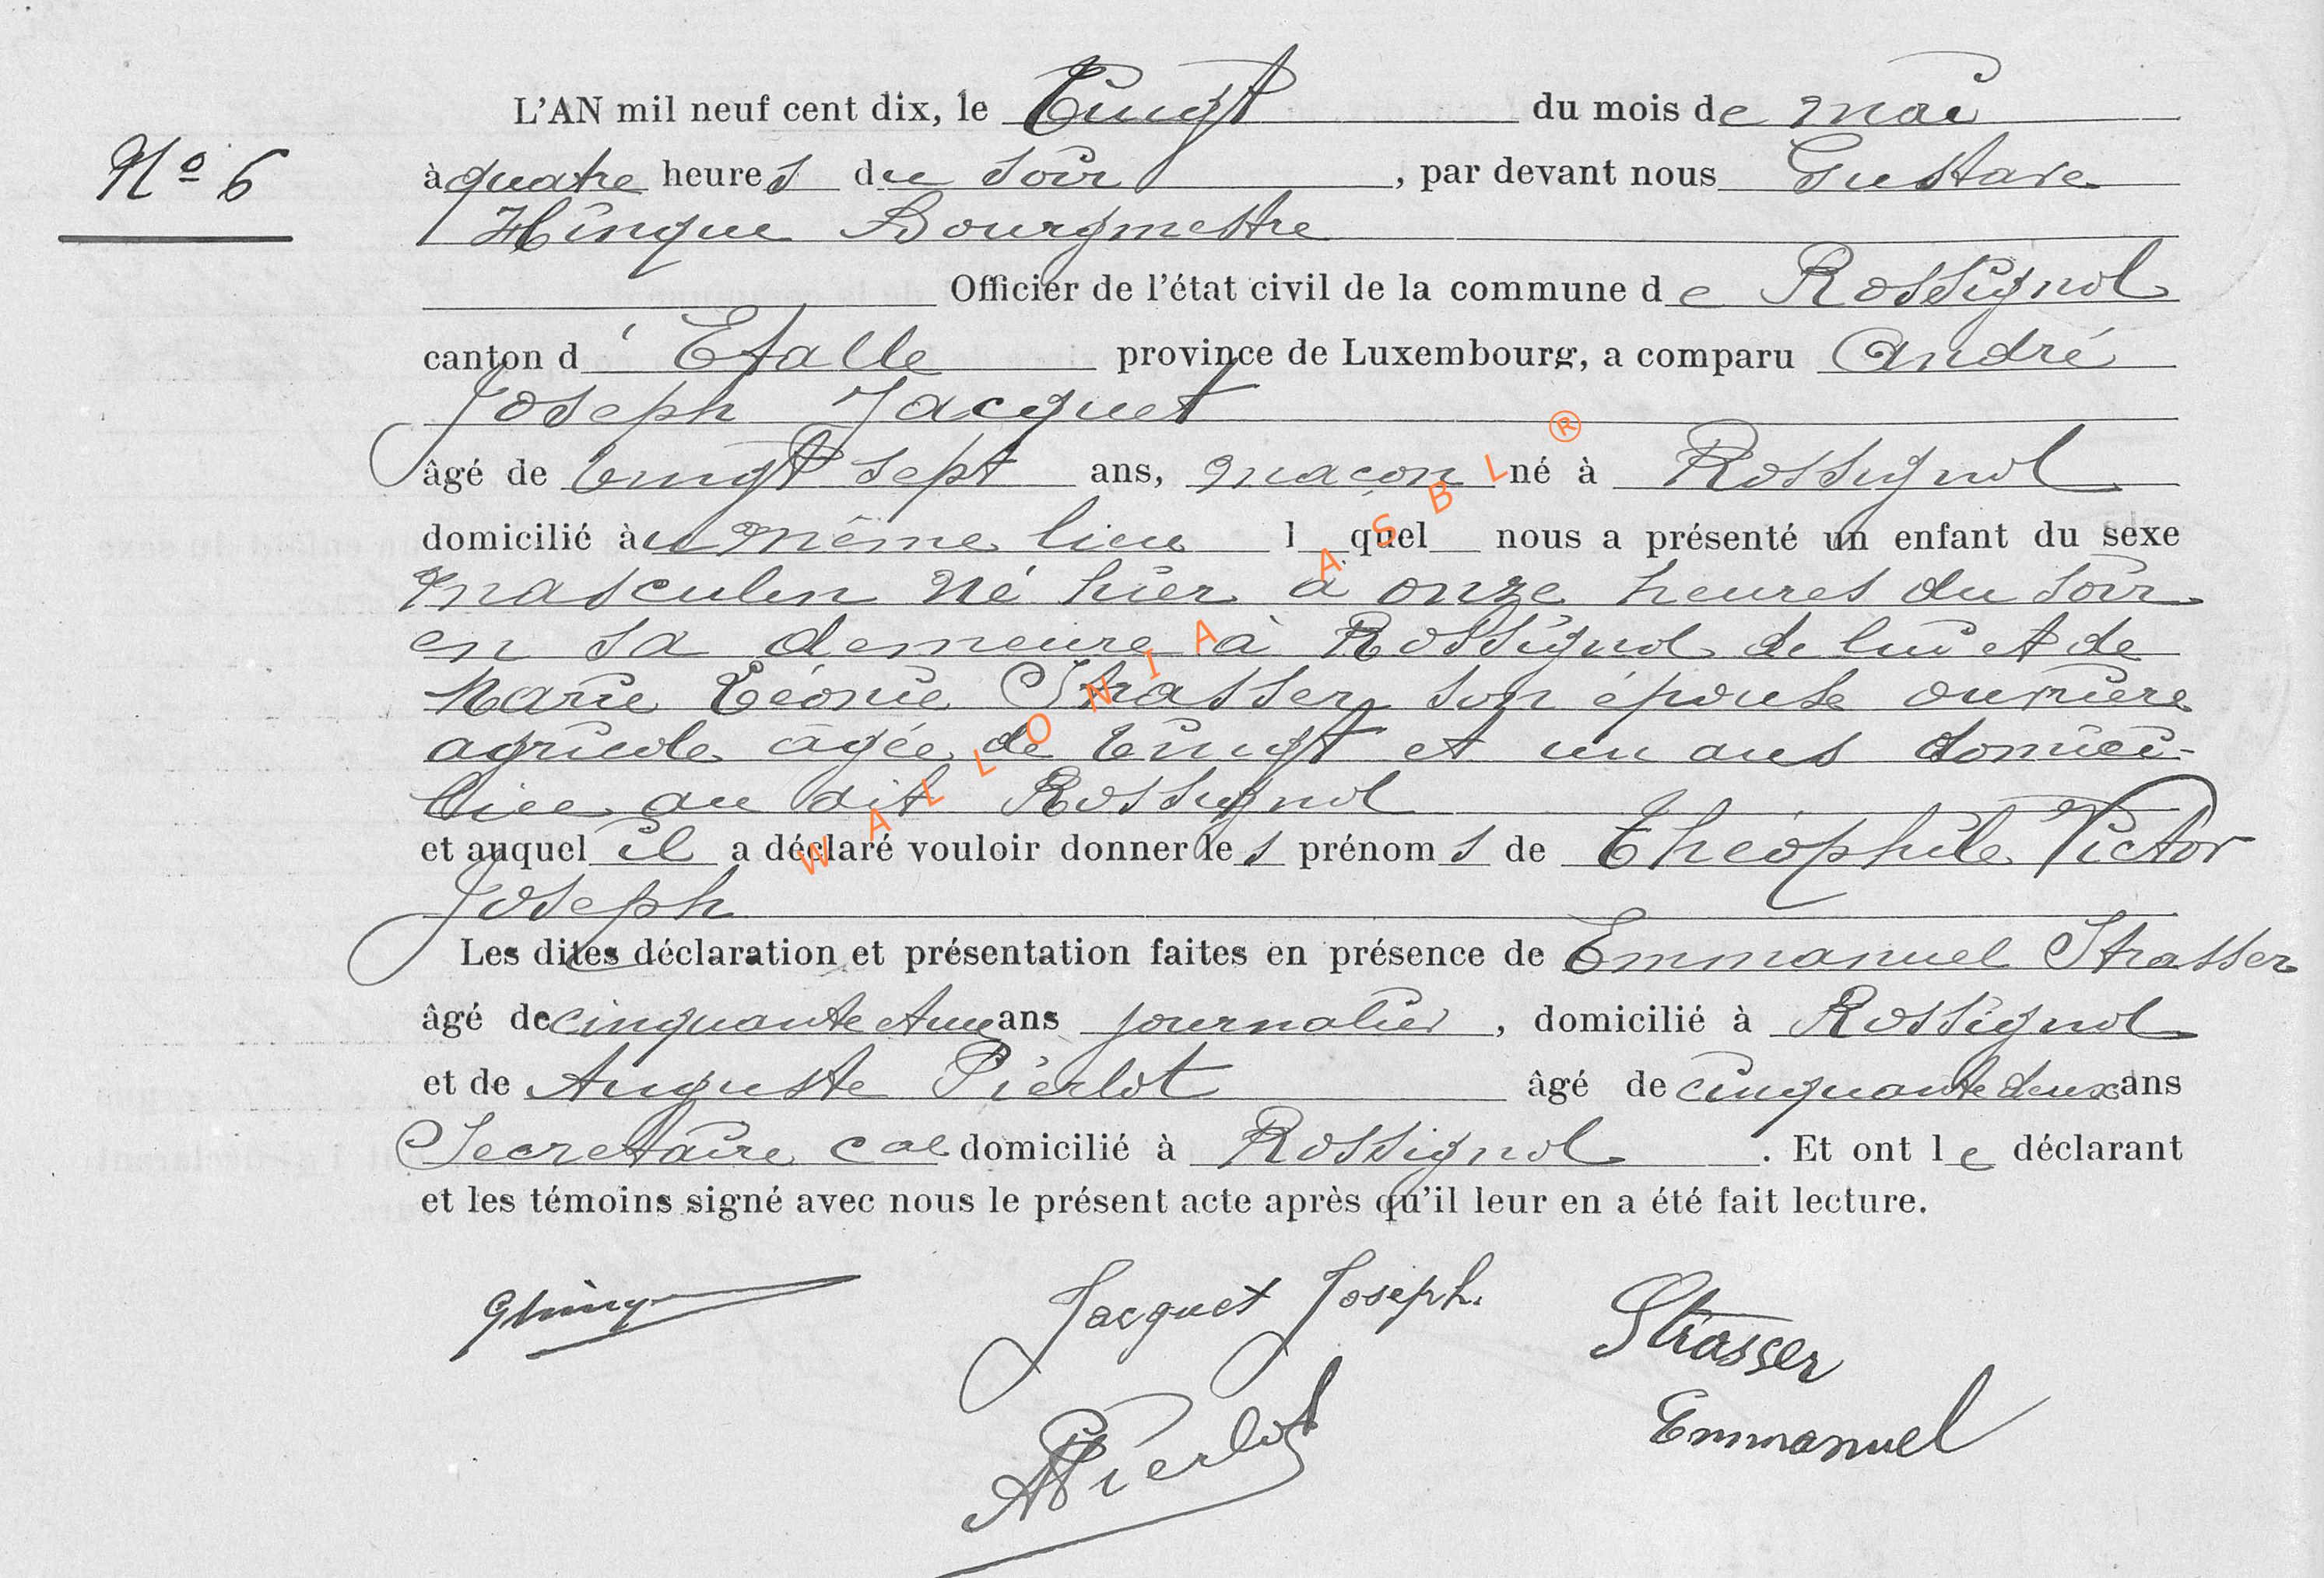 L'AN mil neuf cent dix, le Vingt du mois de mai
N° 6
à quatre heures du soir, par devant nous Gustave
Hinque Bourgmestre
Officier de l'état civil de la commune de Rossignol
canton d'Etalle province de Luxembourg, a comparu André
Joseph Jacquet
âgé de vingt sept ans, maçon né à Rossignol
domicilié au même lieu l quel nous a présenté un enfant du sexe
masculin né hier à onze heures du soir
en sa demeure à Rossignol de lui et de
Marie Léonie Strasser son épouse ouvrière
agricole âgée de vingt et un ans domici-
liée au dit Rossignol
et auquel il a déclaré vouloir donner les prénoms de Théophile Victor
Joseph
Les dites déclaration et présentation faites en présence de Emmanuel Strasser
âgé de cinquante et un ans journalier, domicilié à Rossignol
et de Auguste Pierlot âgé de cinquante deux ans
Secrétaire cal domicilié à Rossignol. Et ont le déclarant
et les témoins signé avec nous le présent acte après qu'il leur en a été fait lecture.
GHinq
Jacquet Joseph.
Strasser
Emmanuel
APierlot
WALLONIA ASBL ®